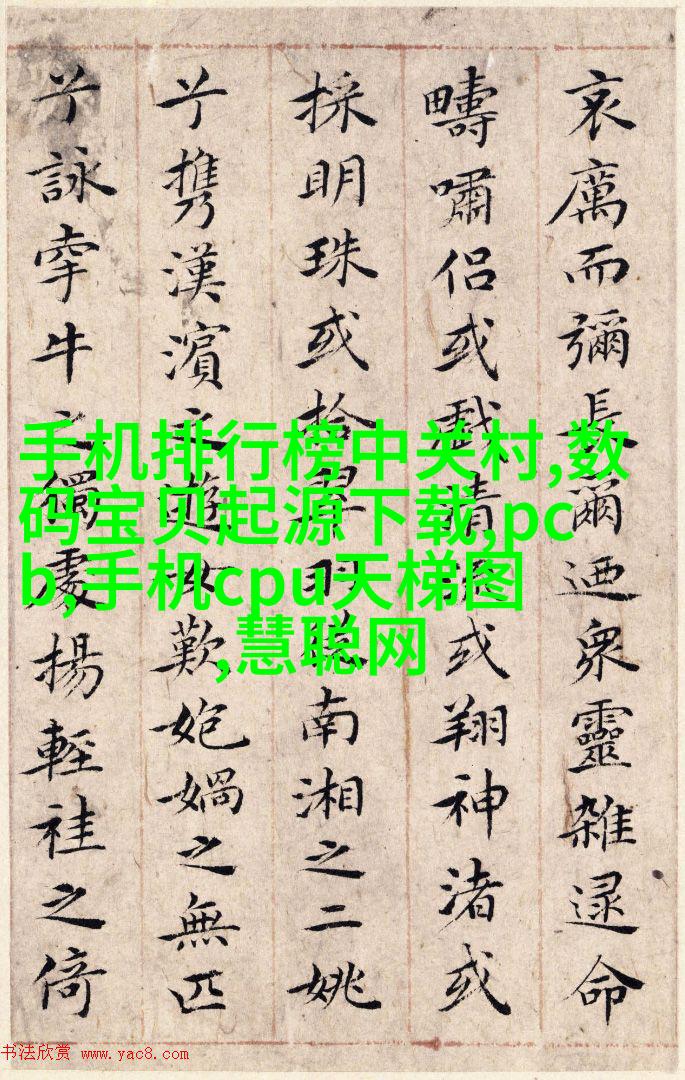 哀厲而彌長爾迺衆靈雜遝命
疇嘯侶或戲清流或翔神渚或
採明珠或拾翠羽從南湘之二姚
兮携漢濱之遊女歎㚿媧之無匹
兮詠牽牛之獨處揚輕袿之倚
手机排行榜中关村,数
码宝贝起源下载,pc
b,手机cpu天梯图
,慧聪网
书法欣赏 www.yac8.com